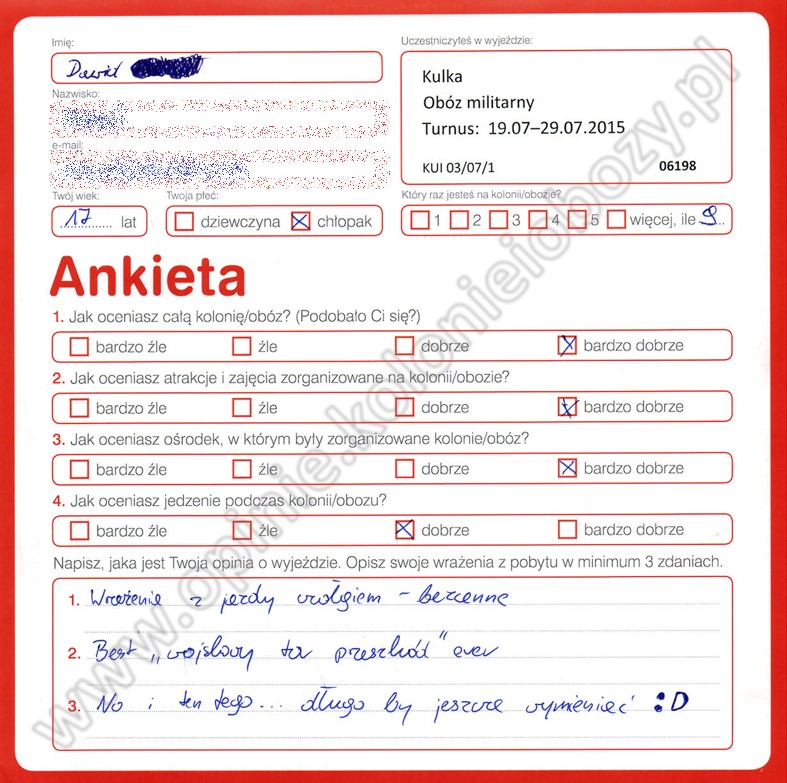 Imię:
Dawid
Uczestniczyłeś w wyjeździe:
Kulka
Obóz militarny
Turnus: 19.07–29.07.2015
KUI 03/07/1 06198
Nazwisko:
e-mail:
Twój wiek:
17 lat
Twoja płeć:
dziewczyna chłopak
Który raz jesteś na kolonii/obozie?
1 2 3 4 5 więcej, ile 9
Ankieta
1. Jak oceniasz całą kolonię/obóz? (Podobało Ci się?)
bardzo źle źle dobrze bardzo dobrze
2. Jak oceniasz atrakcje i zajęcia zorganizowane na kolonii/obozie?
bardzo źle źle dobrze bardzo dobrze
3. Jak oceniasz ośrodek, w którym były zorganizowane kolonie/obóz?
bardzo źle źle dobrze bardzo dobrze
4. Jak oceniasz jedzenie podczas kolonii/obozu?
bardzo źle źle dobrze bardzo dobrze
Napisz, jaka jest Twoja opinia o wyjeździe. Opisz swoje wrażenia z pobytu w minimum 3 zdaniach.
1. Wrażenie z jazdy - bezcenne
2. Best „wojskowy tor przeszkód" ever
3. No i ten tego... długo by jeszcze wymieniać :D
www.opinie.kolonieiobozy.pl